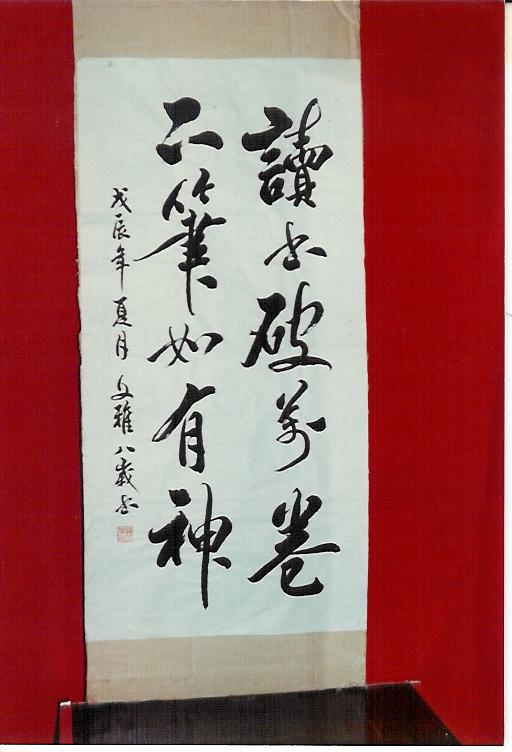 讀書破萬卷
下筆如有神
戊辰年夏月文雅八歲書